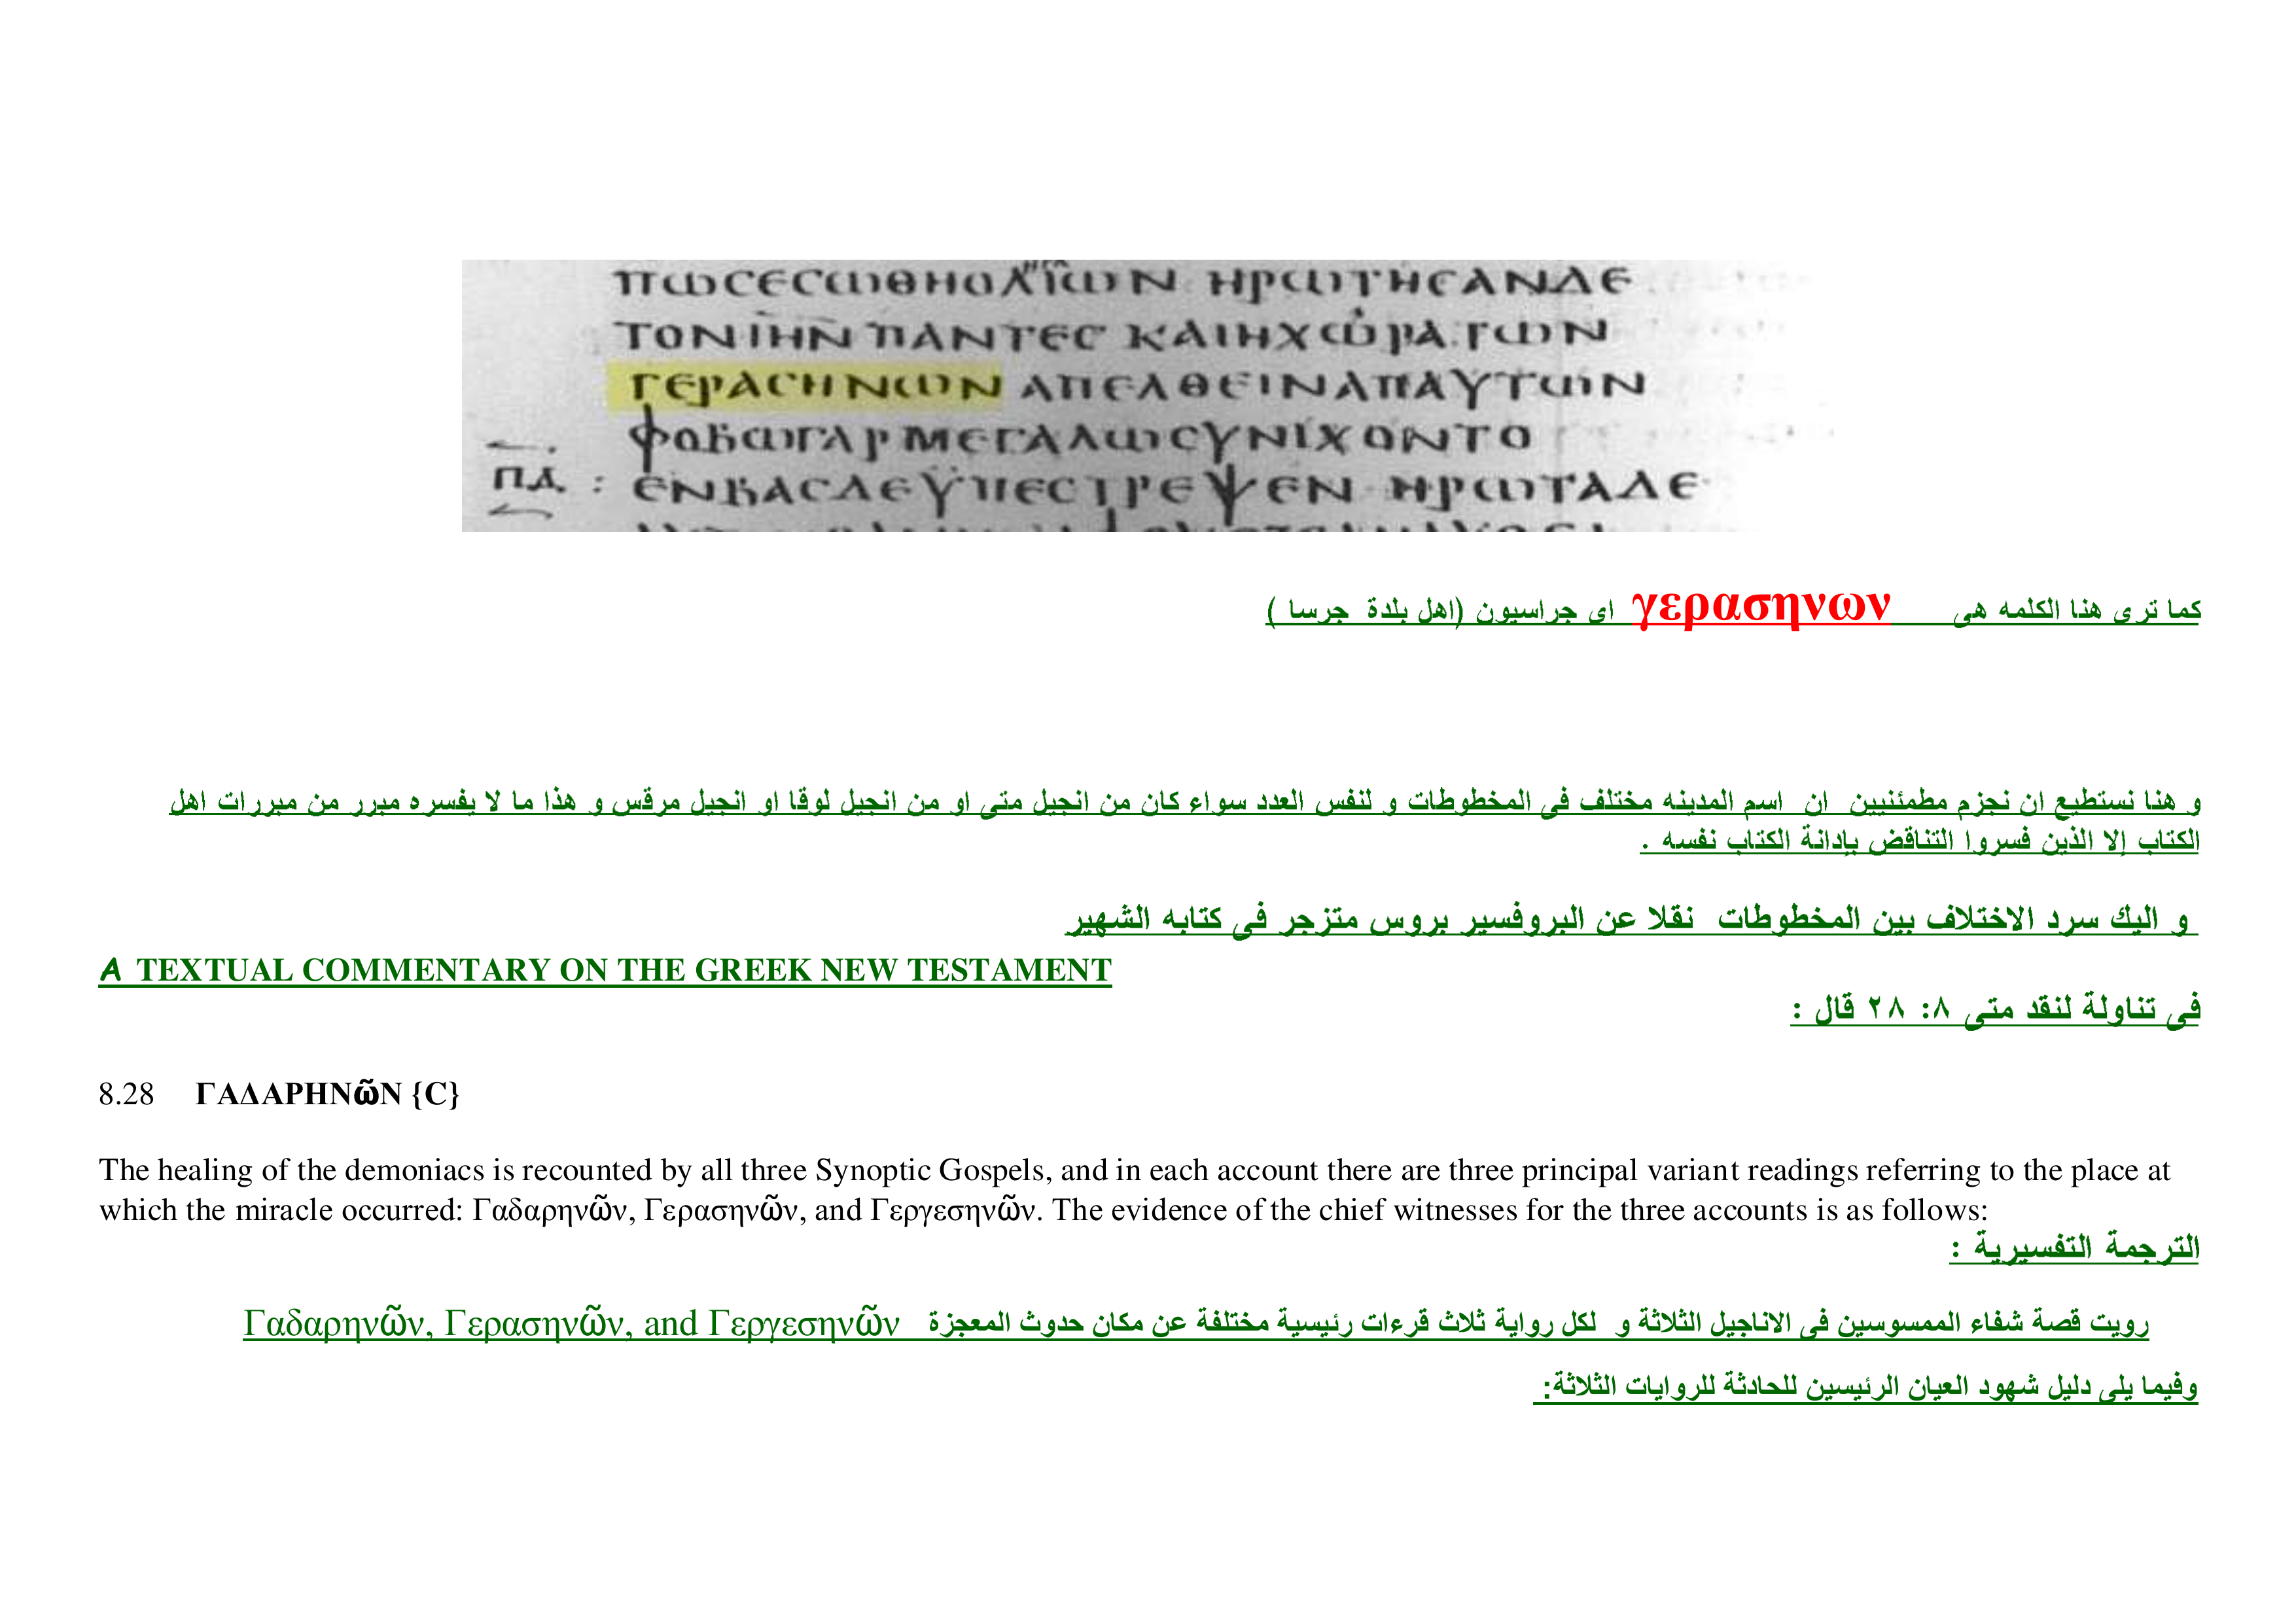 ΠωCЄCωΘΗΟΛΙΓΙωΝ ΗΡωΤΗCΑΝΔЄ
ΤΟΝΙΗΝ ΠΑΝΤЄC ΚΑΙΗΧωΡΑΤωΝ
ΓЄΡΑCΗΝωΝ ΑΠЄΛΘЄΙΝΑΠΑΥΤωΝ
ΦΟΒωΓΑΡΜЄΓΑΛωCΥΝΙΧΟΝΤΟ
ΠΔ : ЄΝΒΑCΔЄΥΠЄCΤΡЄΨЄΝ ΗΡωΤΑΔЄ
كما ترى هنا الكلمه هى γερασηνων اى جراسيون (اهل بلدة جرسا )
و هنا نستطيع ان نجزم مطمئنيين ان اسم المدينه مختلف فى المخطوطات و لنفس العدد سواء كان من انجيل متى او من انجيل لوقا او انجيل مرقس و هذا ما لا يفسره مبرر من مبررات اهل
الكتاب إلا الذين فسروا التناقض بإدانة الكتاب نفسه .
و اليك سرد الاختلاف بين المخطوطات نقلا عن البروفسير بروس متزجر فى كتابه الشهير
A TEXTUAL COMMENTARY ON THE GREEK NEW TESTAMENT
فى تناولة لنقد متى ٨: ٢٨ قال :
8.28 ΓΑΔΑΡΗΝῶΝ {C}
The healing of the demoniacs is recounted by all three Synoptic Gospels, and in each account there are three principal variant readings referring to the place at
which the miracle occurred: Γαδαρηνῶν, Γερασηνῶν, and Γεργεσηνῶν. The evidence of the chief witnesses for the three accounts is as follows:
الترجمة التفسيرية :
رويت قصة شفاء الممسوسين فى الاناجيل الثلاثة و لكل رواية ثلاث قرءات رئيسية مختلفة عن مكان حدوث المعجزة Γαδαρηνῶν, Γερασηνῶν, and Γεργεσηνῶν
وفيما يلى دليل شهود العيان الرئيسين للحادثة للروايات الثلاثة: